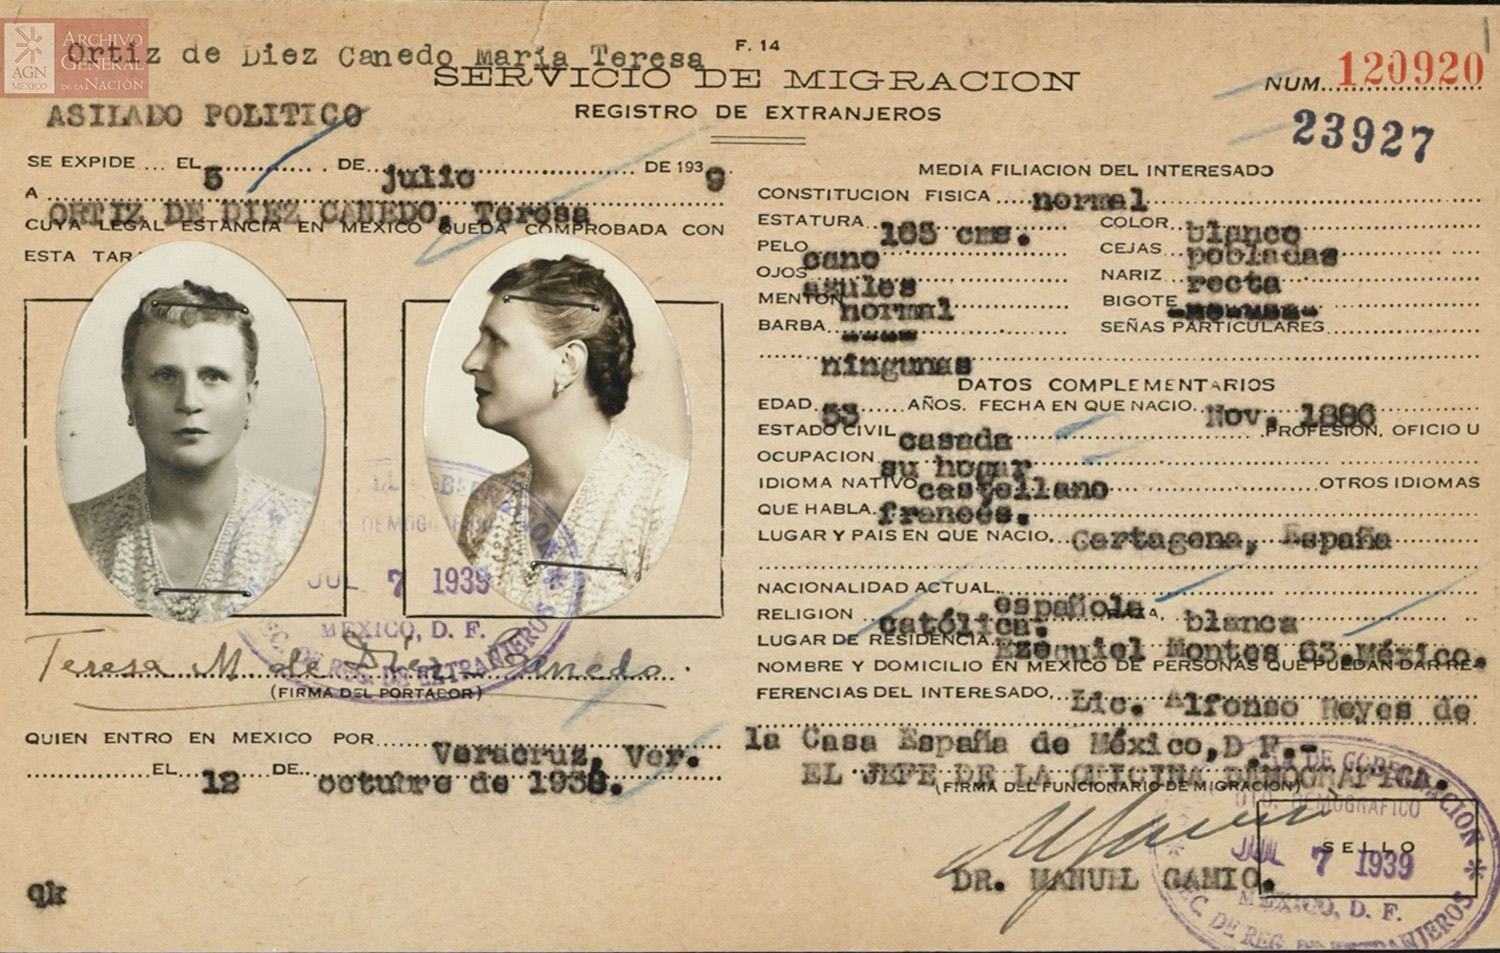 ARCHIVO
GENERAL
DE LA NACIÓN
AGN
MÉXICO
Ortiz de Diez Canedo María Teresa
F. 14
SERVICIO DE MIGRACION
REGISTRO DE EXTRANJEROS
NUM. 120920
23927
ASILADO POLITICO
SE EXPIDE ... EL 5 DE julio DE 1939
A ORTIZ DE DIEZ CANEDO, Teresa
CUYA LEGAL ESTANCIA EN MEXICO QUEDA COMPROBADA CON
ESTA TAR
JUL 7 1939
MEXICO, D. F.
Teresa M. de Díez Canedo.
(FIRMA DEL PORTADOR)
QUIEN ENTRO EN MEXICO POR Veracruz, Ver.
EL 12 DE octubre de 1938.
qk
MEDIA FILIACION DEL INTERESADO
CONSTITUCION FISICA normal
ESTATURA 165 cms. COLOR blanco
PELO cano CEJAS pobladas
OJOS azules NARIZ recta
MENTON normal BIGOTE
BARBA SEÑAS PARTICULARES
ningunas
DATOS COMPLEMENTARIOS
EDAD 53 AÑOS. FECHA EN QUE NACIO Nov. 1886
ESTADO CIVIL casada PROFESION, OFICIO U
OCUPACION su hogar
IDIOMA NATIVO castellano OTROS IDIOMAS
QUE HABLA francés.
LUGAR Y PAIS EN QUE NACIO Cartagena, España
NACIONALIDAD ACTUAL española
RELIGION católica. RAZA blanca
LUGAR DE RESIDENCIA Ezequiel Montes 63. México.
NOMBRE Y DOMICILIO EN MEXICO DE PERSONAS QUE PUEDAN DAR RE-
FERENCIAS DEL INTERESADO Lic. Alfonso Reyes de
la Casa España de México, D F.-
EL JEFE DE LA OFICINA DEMOGRAFICA.
(FIRMA DEL FUNCIONARIO DE MIGRACION)
DR. MANUEL GAMIO.
SELLO
DEMOGRAFICO
JUL 7 1939
MEXICO, D. F.